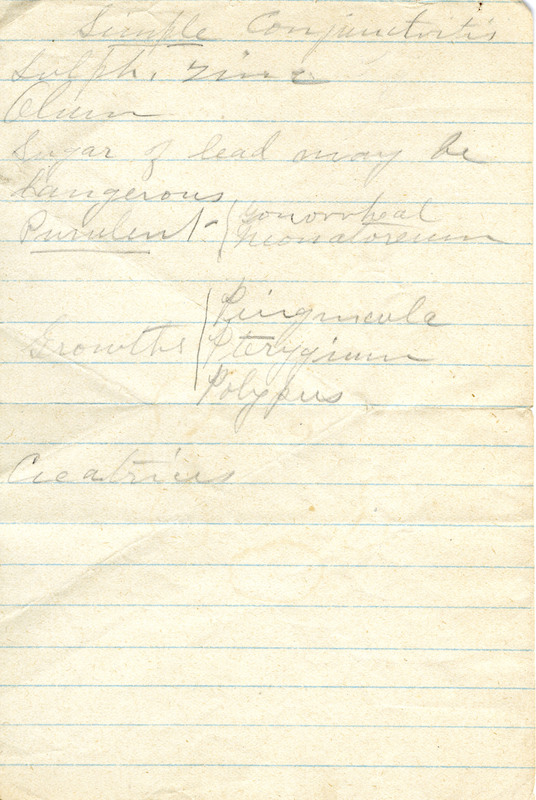 Simple Conjunctivitis
Sulph. Zinc
Alum
Sugar of lead may be
dangerous
Purulent - { gonorrheal
neonatoreum
Growths { Pinguicula
Pterygium
Polypus
Cicatrices